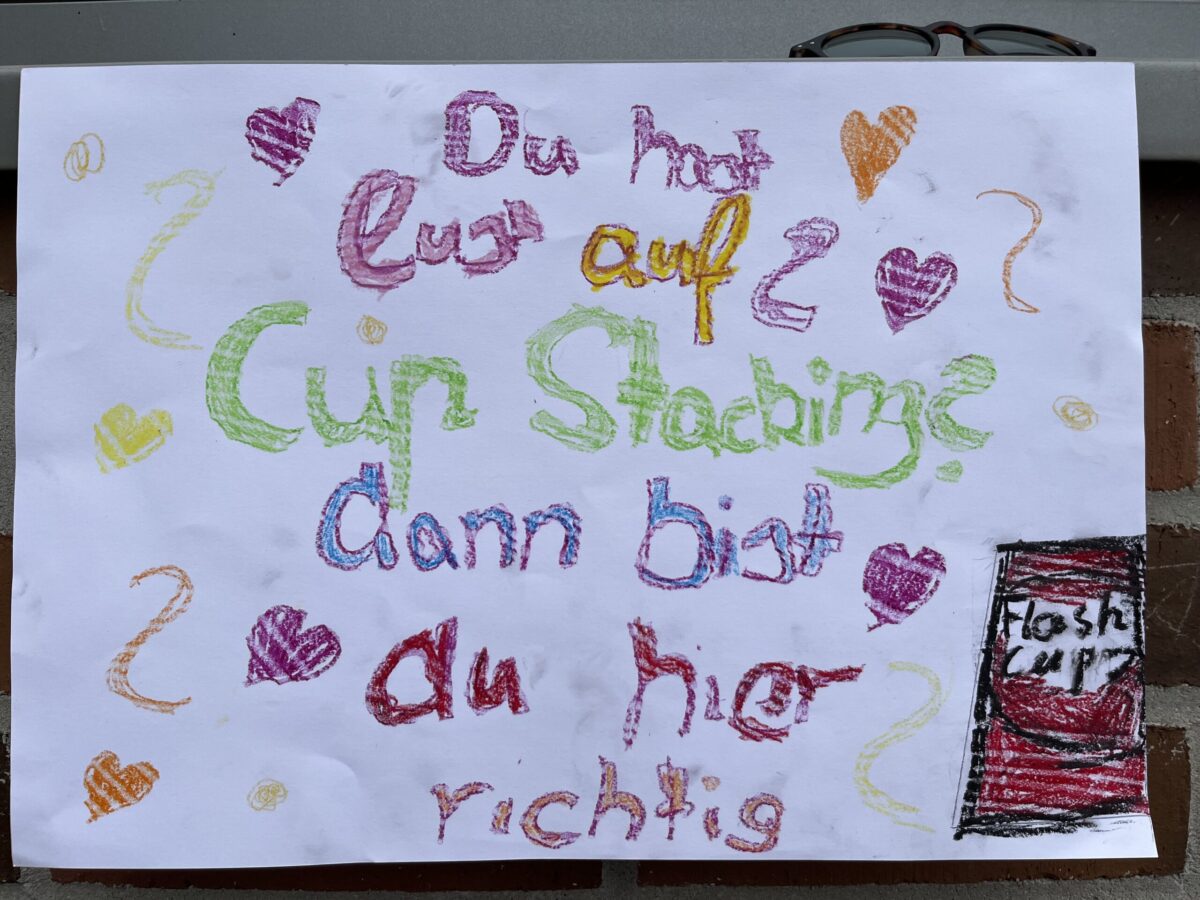 Du hast
lust auf
Cup Stacking?
dann bist
du hier
richtig
Flash
cups